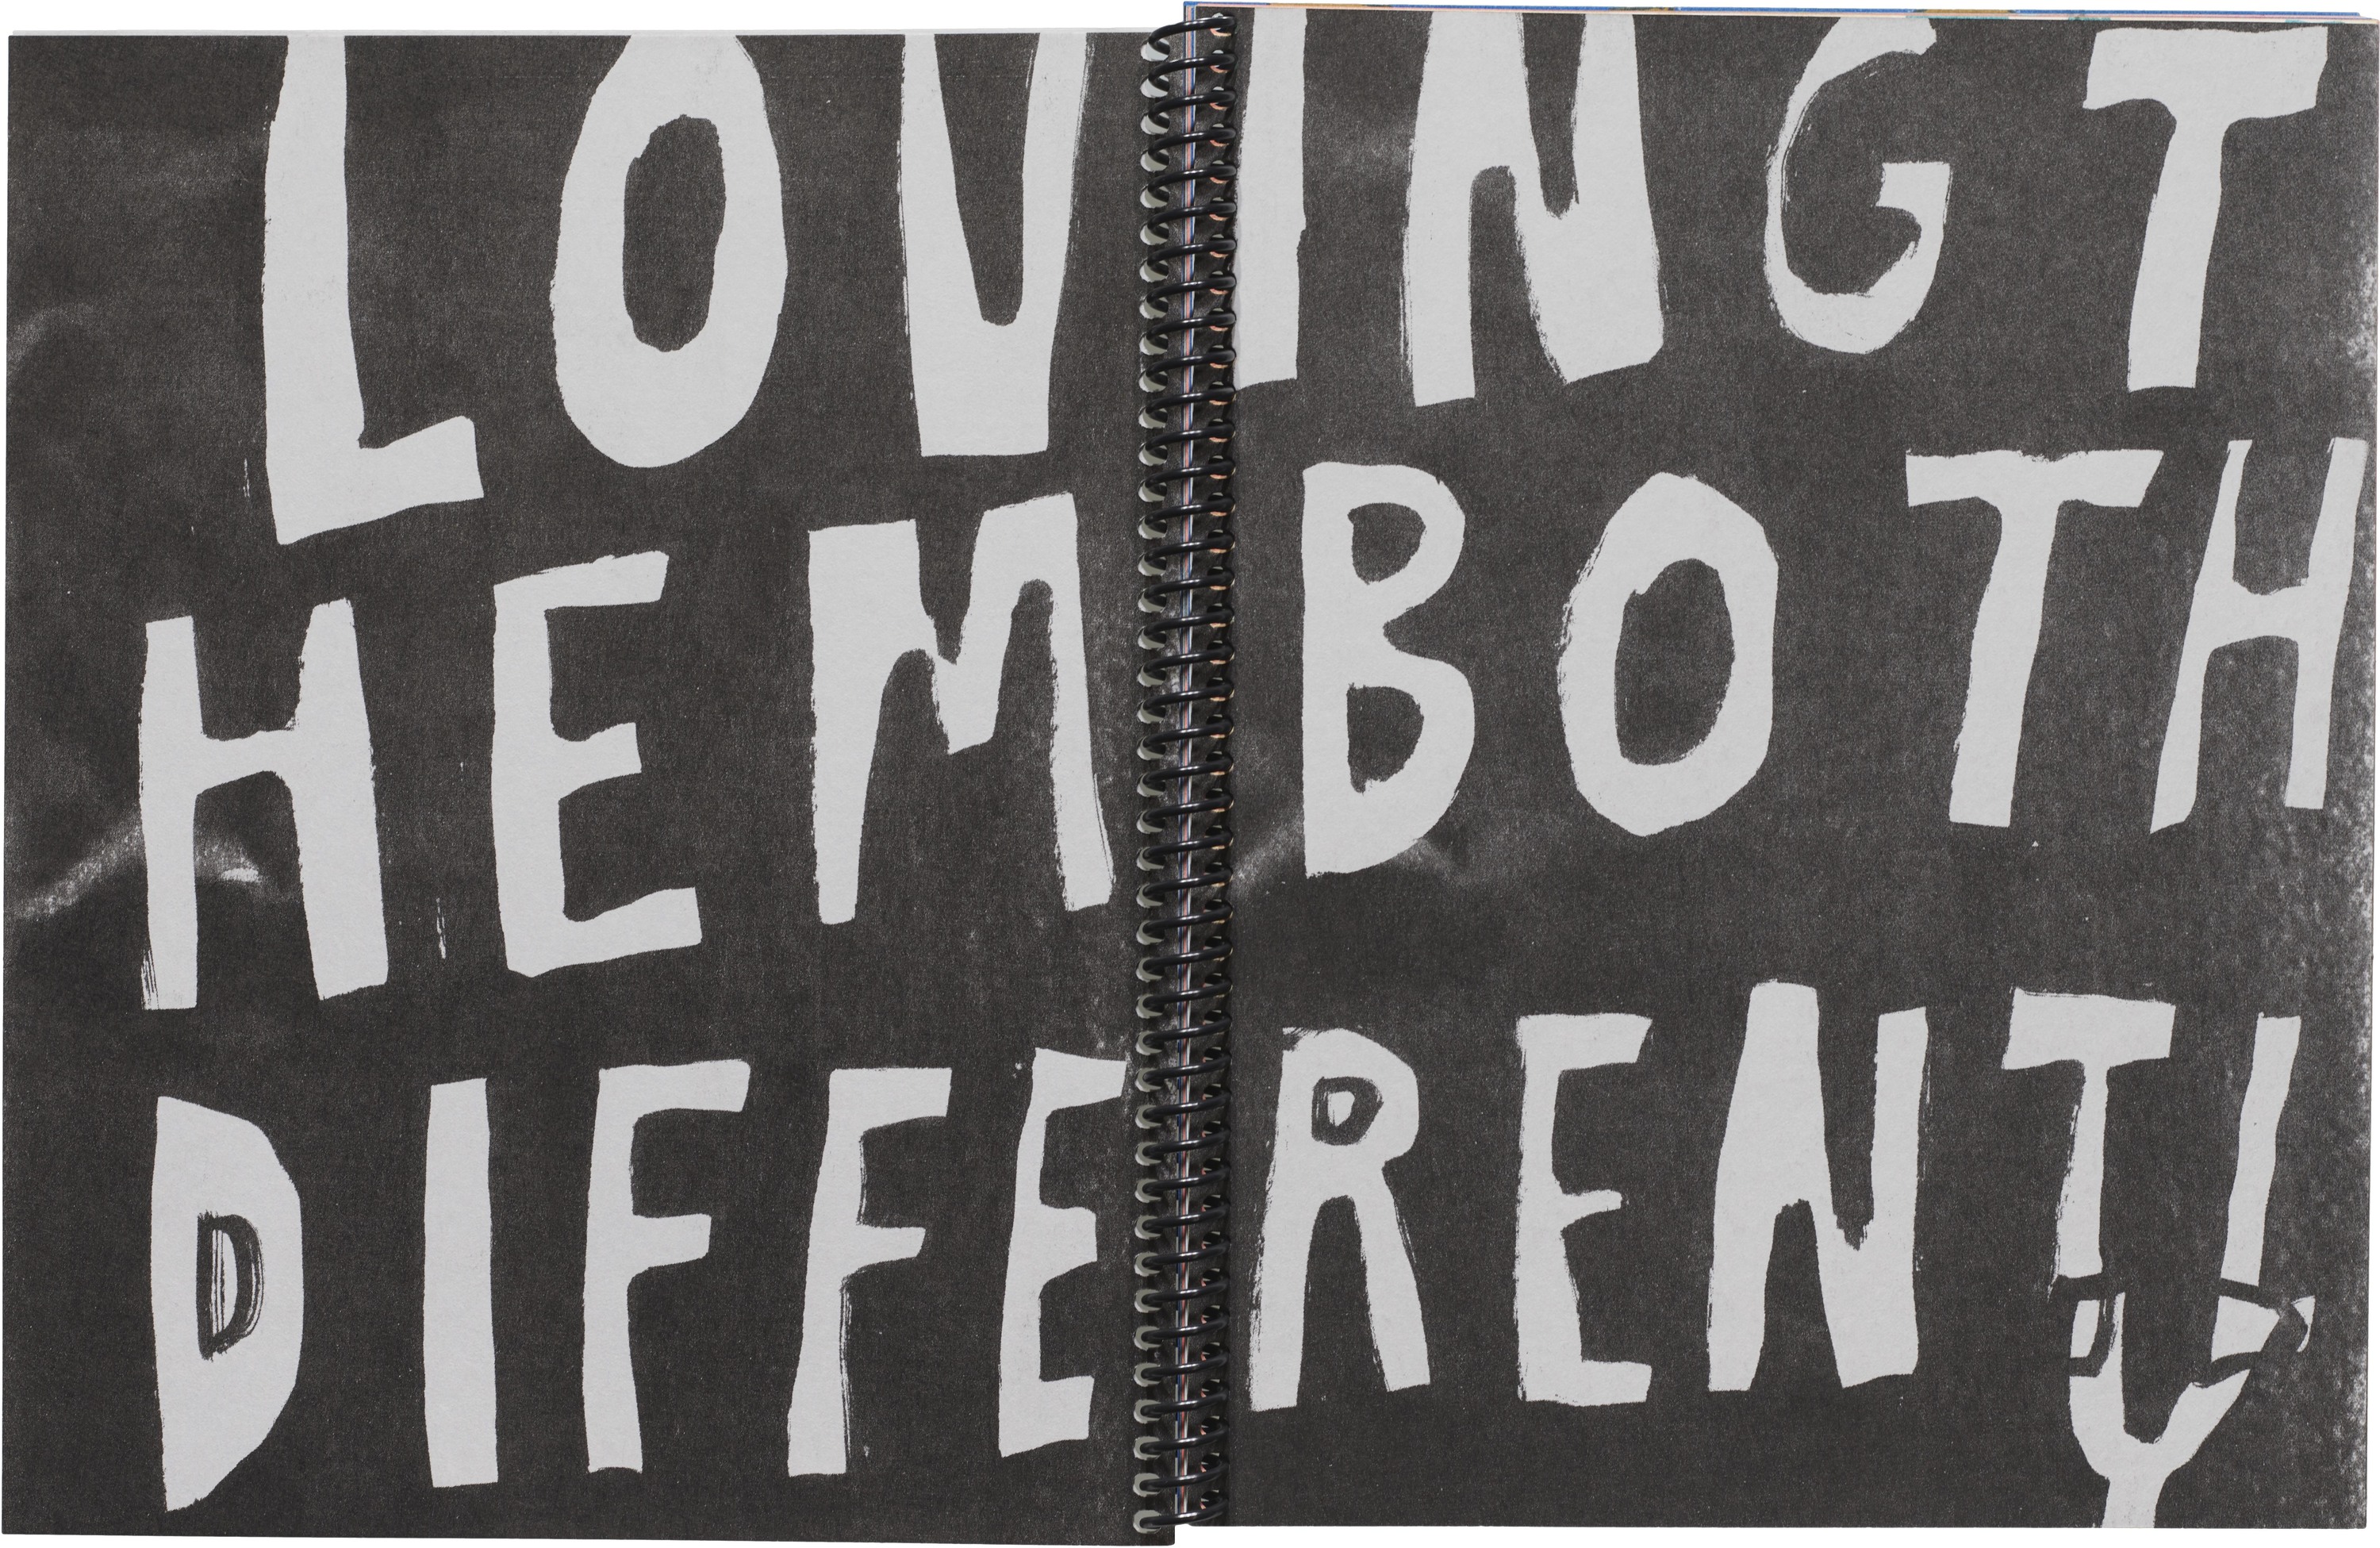 LOVINGT
HEM BOTH
DIFFERENTL
Y